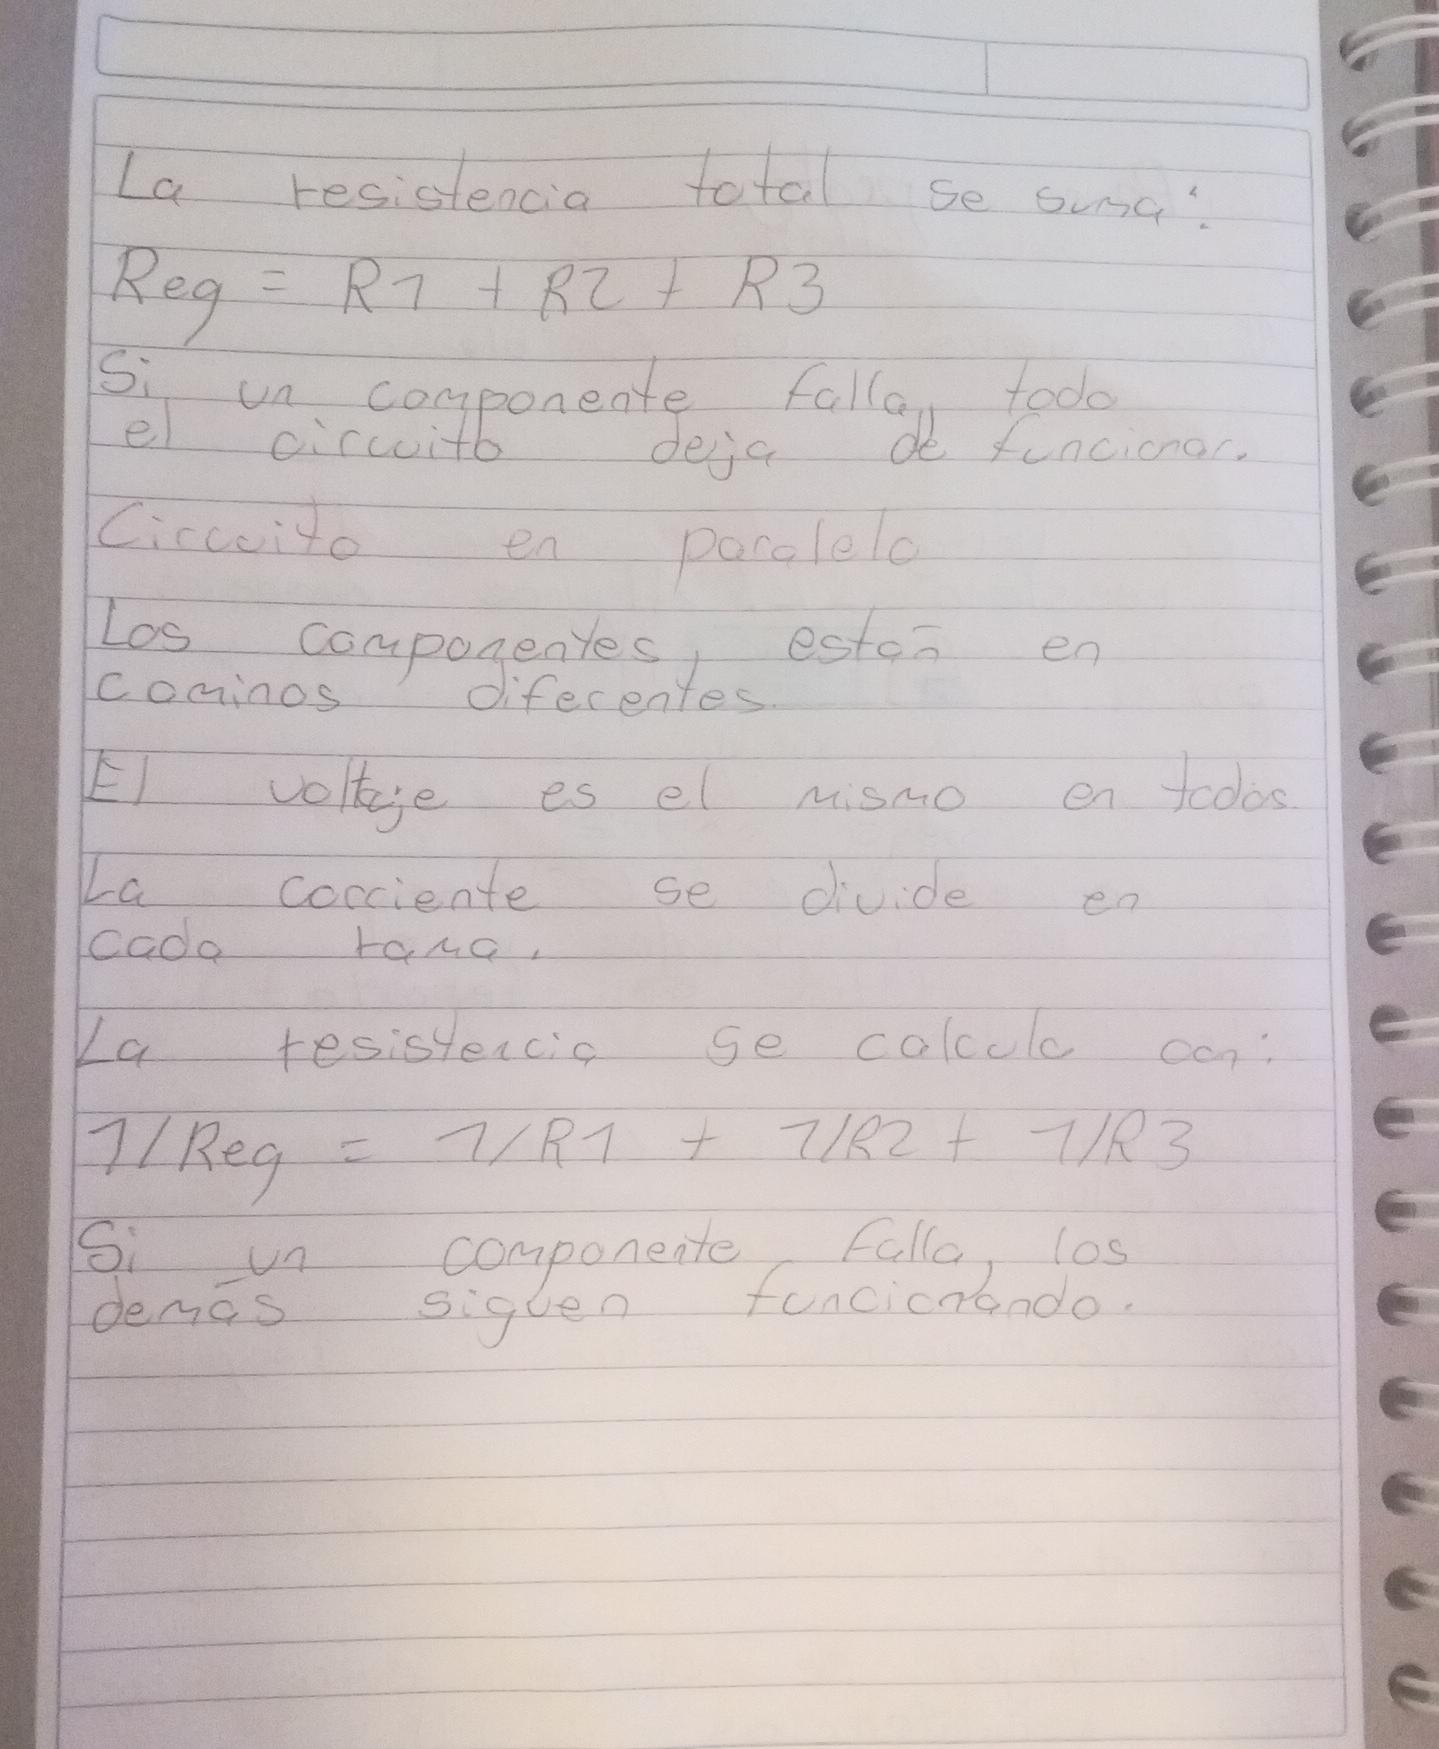 La resistencia total se suma:
Reg = R1 + R2 + R3
Si un componente falla, todo
el circuito deja de funcionar.
Circuito en paralelo
Los componentes, están en
caminos diferentes.
El voltaje es el mismo en todos
La corriente se divide en
cada rama.
La resistencia se calcula con:
1/Reg = 1/R1 + 1/R2 + 1/R3
Si un componente falla, los
demás siguen funcionando.